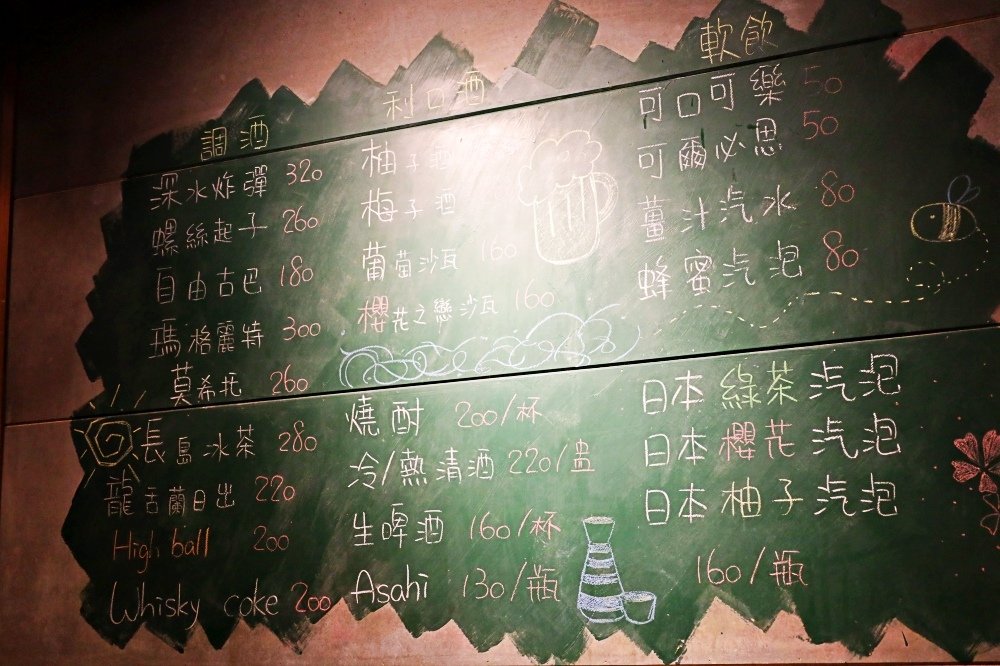 調酒
深水炸彈 320
螺絲起子 260
自由古巴 180
瑪格麗特 300
莫希托 260
長島冰茶 280
龍舌蘭日出 220
High ball 200
Whisky coke 200
利口酒
柚子酒
梅子酒
葡萄沙瓦 160
櫻花之戀沙瓦 160
燒酎 200/杯
冷/熱清酒 220/盅
生啤酒 160/杯
Asahi 130/瓶
軟飲
可口可樂 50
可爾必思 50
薑汁汽水 80
蜂蜜汽泡 80
日本綠茶汽泡
日本櫻花汽泡
日本柚子汽泡
160/瓶